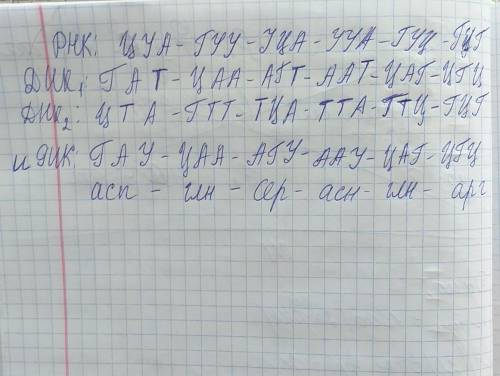 РНК: ЦУА - ГУУ - УЦА - УУА - ГУЦ - ГЦГ
ДНК₁: ГАТ - ЦАА - АГТ - ААТ - ЦАГ - ЦГЦ
ДНК₂: ЦТА - ГТТ - ТЦА - ТТА - ГТЦ - ГЦГ
иРНК: ГАУ - ЦАА - АГУ - ААУ - ЦАГ - ЦГЦ
асп - глн - сер - асн - глн - арг